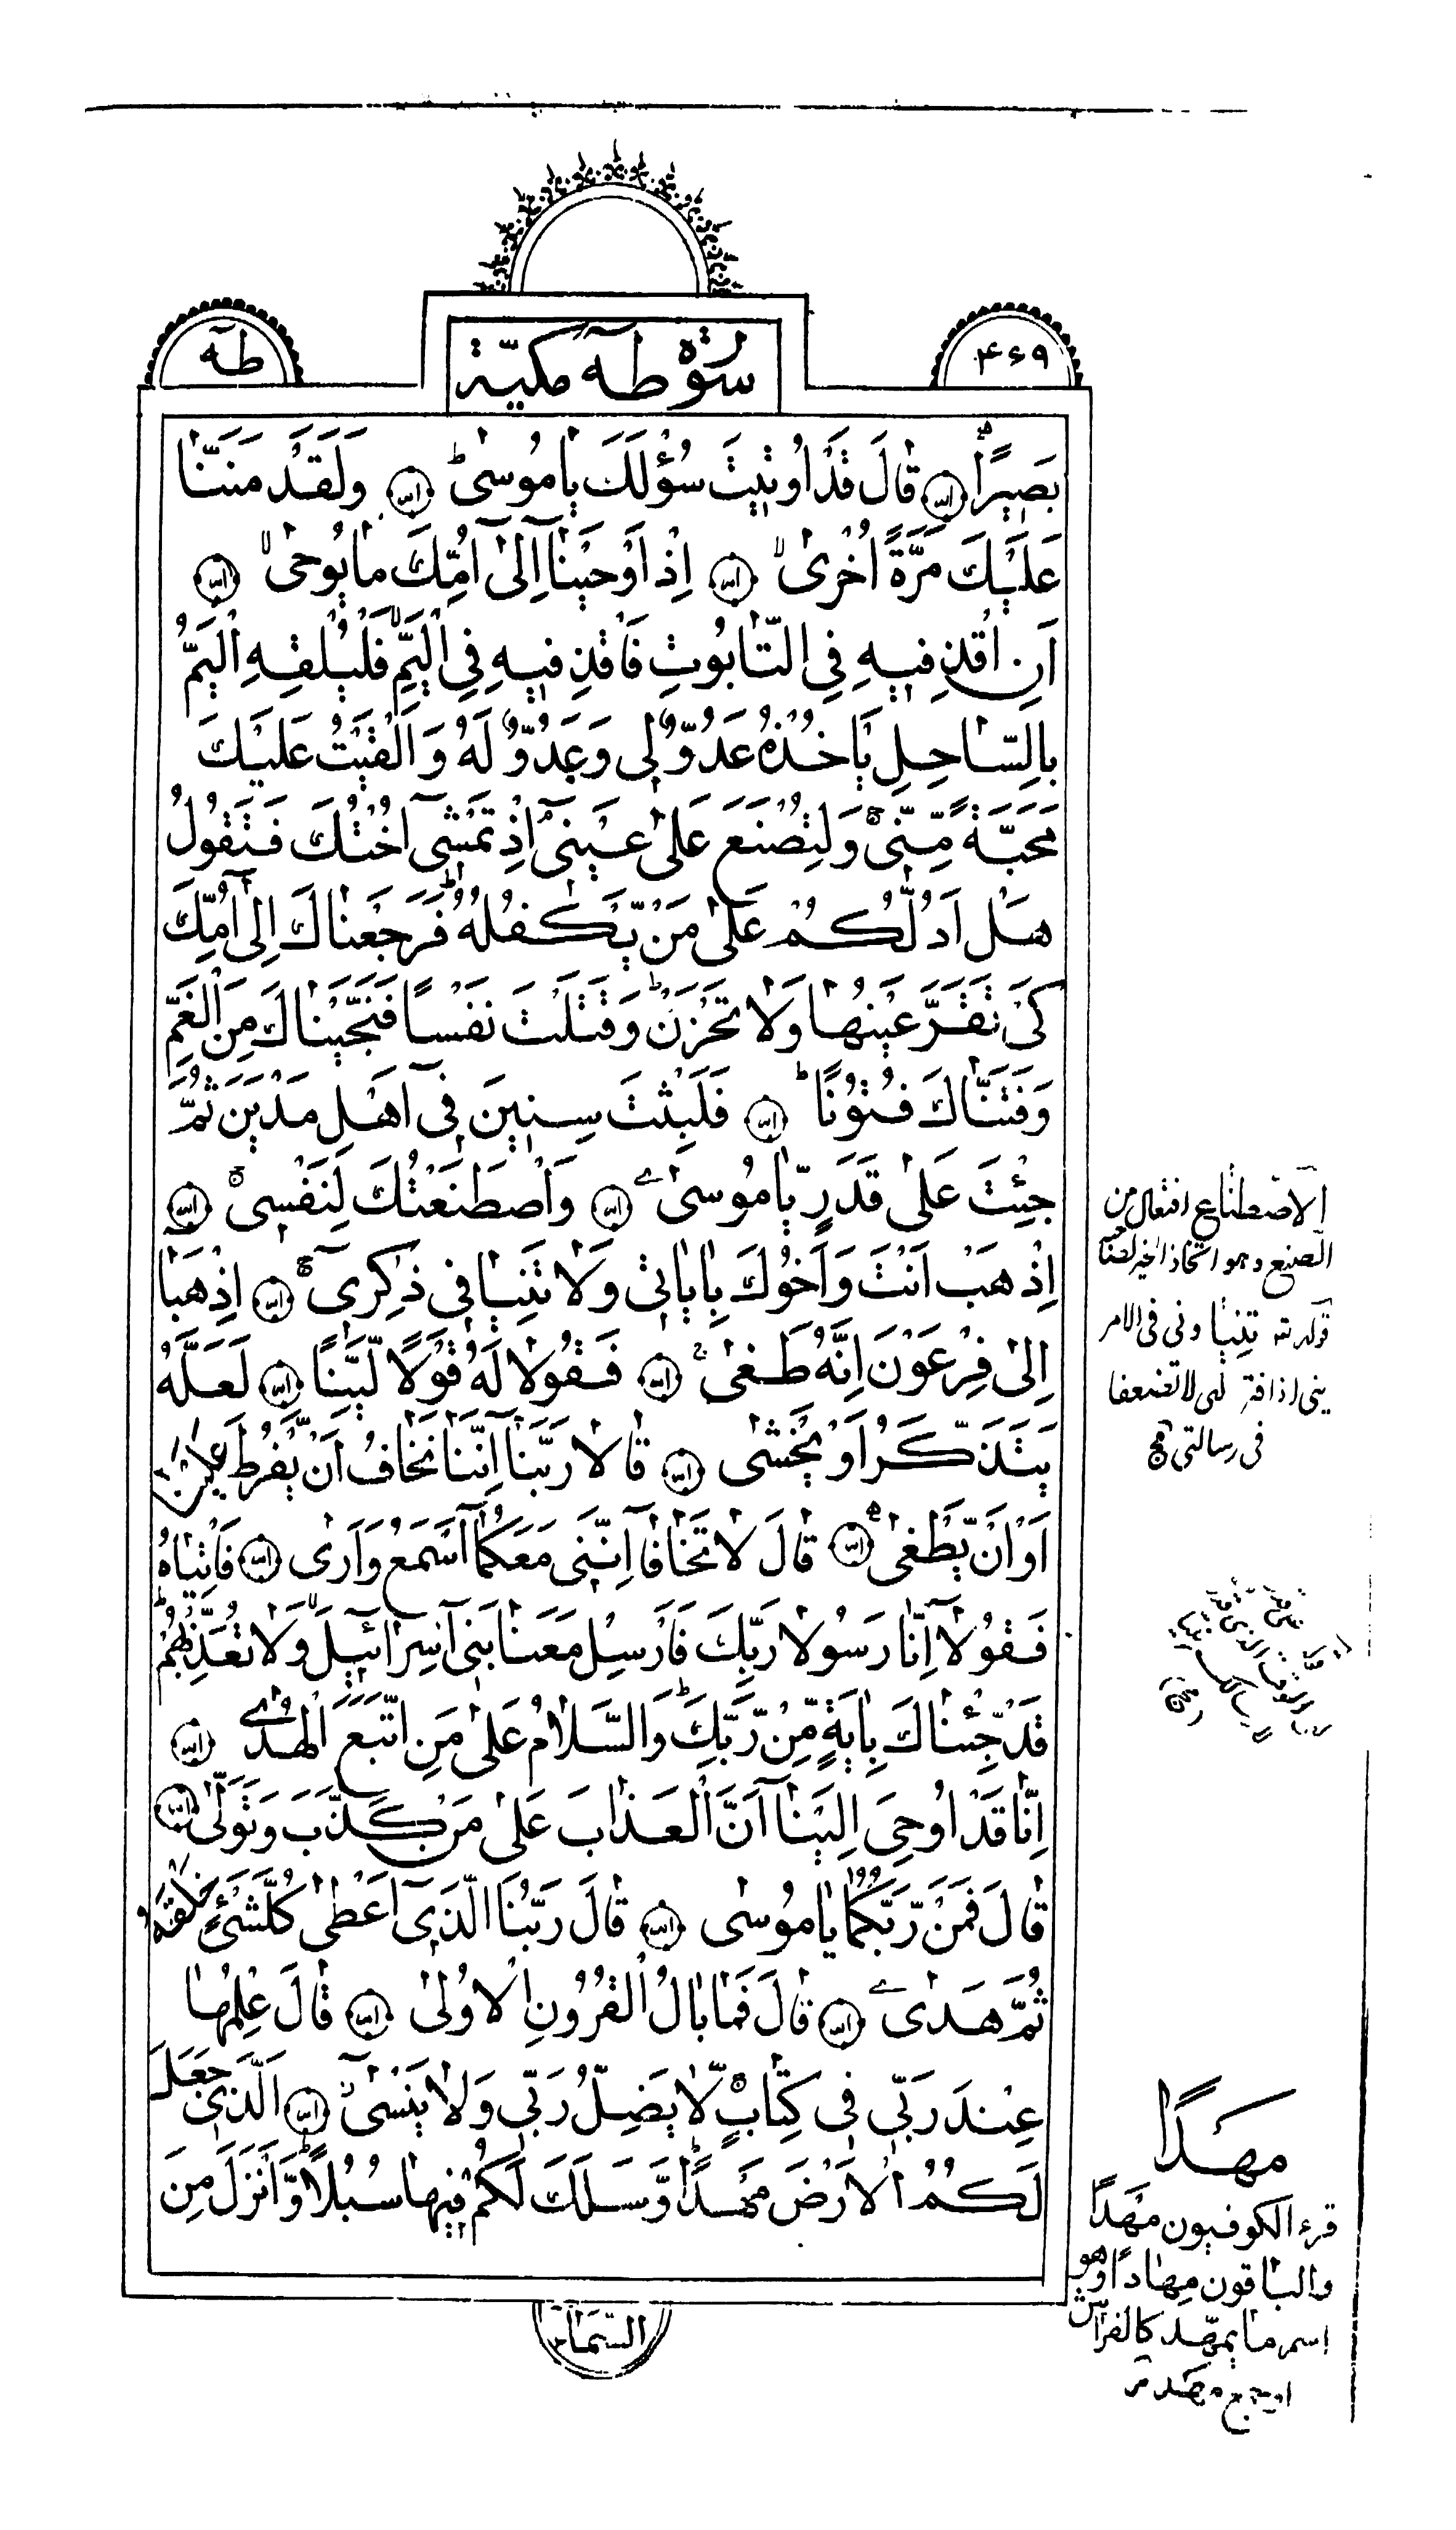 ۴۶۹
سورة طه مکیة
طه
بَصیرًا قالَ قَدْ اُوتیتَ سُؤْلَكَ یا مُوسی وَلَقَدْ مَنَنّا
عَلَیْكَ مَرَّةً اُخْری اِذْ اَوْحَیْنا اِلی اُمِّكَ ما یُوحی
اَنِ اقْذِفیهِ فِی التّابُوتِ فَاقْذِفیهِ فِی الْیَمِّ فَلْیُلْقِهِ الْیَمُّ
بِالسّاحِلِ یَاْخُذْهُ عَدُوٌّ لی وَعَدُوٌّ لَهُ وَاَلْقَیْتُ عَلَیْكَ
مَحَبَّةً مِنّی وَلِتُصْنَعَ عَلی عَیْنی اِذْ تَمْشی اُخْتُكَ فَتَقُولُ
هَلْ اَدُلُّكُمْ عَلی مَنْ یَكْفُلُهُ فَرَجَعْناكَ اِلی اُمِّكَ
كَیْ تَقَرَّ عَیْنُها وَلا تَحْزَنَ وَقَتَلْتَ نَفْسًا فَنَجَّیْناكَ مِنَ الْغَمِّ
وَفَتَنّاكَ فُتُونًا فَلَبِثْتَ سِنینَ فی اَهْلِ مَدْیَنَ ثُمَّ
جِئْتَ عَلی قَدَرٍ یا مُوسی وَاصْطَنَعْتُكَ لِنَفْسی
اِذْهَبْ اَنْتَ وَاَخُوكَ بِایاتی وَلا تَنِیا فی ذِكْری اِذْهَبا
اِلی فِرْعَوْنَ اِنَّهُ طَغی فَقُولا لَهُ قَوْلًا لَیِّنًا لَعَلَّهُ
یَتَذَكَّرُ اَوْ یَخْشی قالا رَبَّنا اِنَّنا نَخافُ اَنْ یَفْرُطَ عَلَیْنا
اَوْ اَنْ یَطْغی قالَ لا تَخافا اِنَّنی مَعَكُما اَسْمَعُ وَاَری فَاْتِیاهُ
فَقُولا اِنّا رَسُولا رَبِّكَ فَاَرْسِلْ مَعَنا بَنی اِسْرائیلَ وَلا تُعَذِّبْهُمْ
قَدْ جِئْناكَ بِایَةٍ مِنْ رَبِّكَ وَالسَّلامُ عَلی مَنِ اتَّبَعَ الْهُدی
اِنّا قَدْ اُوحِیَ اِلَیْنا اَنَّ الْعَذابَ عَلی مَنْ كَذَّبَ وَتَوَلّی
قالَ فَمَنْ رَبُّكُما یا مُوسی قالَ رَبُّنَا الَّذی اَعْطی كُلَّ شَیْءٍ خَلْقَهُ
ثُمَّ هَدی قالَ فَما بالُ الْقُرُونِ الْاُولی قالَ عِلْمُها
عِنْدَ رَبّی فی كِتابٍ لا یَضِلُّ رَبّی وَلا یَنْسی اَلَّذی جَعَلَ
لَكُمُ الْاَرْضَ مَهْدًا وَسَلَكَ لَكُمْ فیها سُبُلًا وَاَنْزَلَ مِنَ
السَّماءِ
الاصطناع افتعال من
الصنیع وهو اتخاذ الخیر لصاحبه
تنیا ونی فی الامر
ینی اذا فتر ای لا تضعفا
فی رسالتی
مَهْدًا
قرء الکوفیون مَهْدًا
والباقون مِهادًا وهو
اسم ما یمهد کالفراش
او جمع مهد